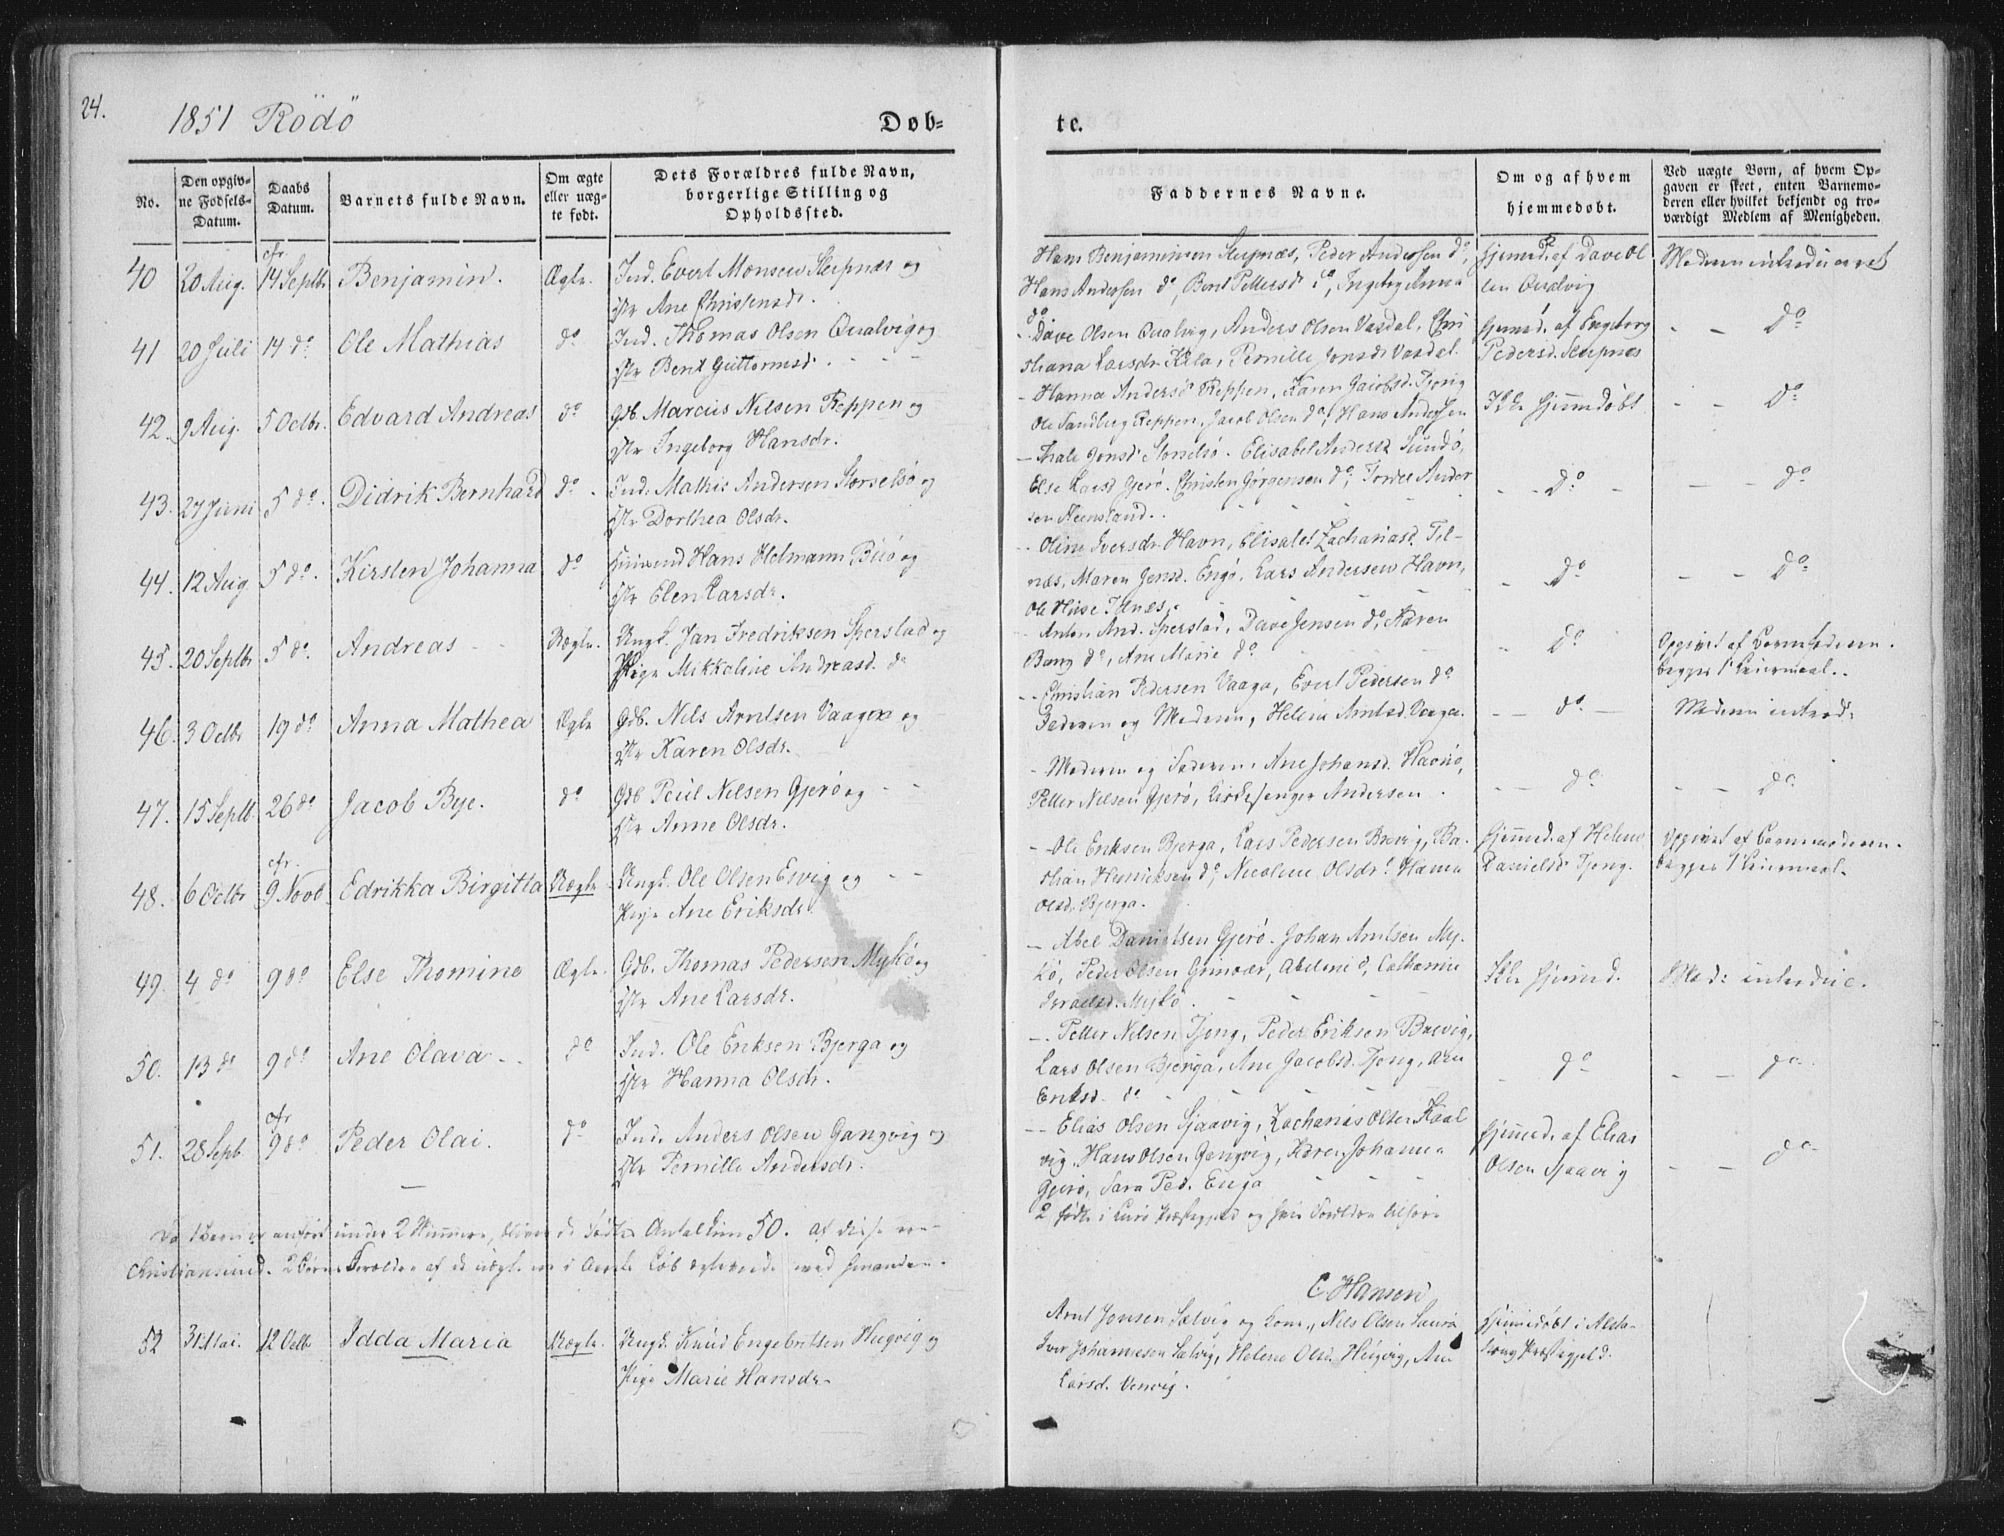 24.
1851 Rödö
Døb=
te.
No.
Den opgiv=
ne Fødsels=
Datum.
Daabs
Datum.
Barnets fulde Navn.
Om ægte
eller uæg=
te født.
Dets Forældres fulde Navn,
borgerlige Stilling og
Opholdssted.
Faddernes Navne.
Om og af hvem
hjemmedøbt.
Ved uægte Børn, af hvem Op=
gaven er skeet, enten Barnemo=
deren eller hvilket bekjendt og tro=
værdigt Medlem af Menigheden.
cfr
40 20 Aug. 14 Septbr Benjamin. Ægte. Ind. Evert Monsen Skepnæs og
Hs Ane Christensdr.
Hans Benjaminsen Skepnæs, Peder Andersen do,
Hans Andersen do, Berit Pettersd do, Ingebrg Anna
do
hjemd. af Dave Ol
sen Qualvig
Moderen introduceret
41 20 Juli 14 do Ole Mathias do Ind. Thomas Olsen Qualvig og
Hs Berit Guttormsd.
- Dave Olsen Qualvig, Anders Olsen Vasdal, Chri
stiana Larsdr Kila, Pernille Jonsdr Vasdal.
hjemd. af Engeborg
Pedersd. Skepnæs
- - do
42. 9 Aug. 5 Octbr. Edvard Andreas do Gdb. Marcus Nilsen Reppen og
Hs Ingeborg Hansdr.
- Hanna Andersd Reppen, Karen Jacobsd. Tjong
Ole Sandberg Reppen, Jacob Olsen do, Hans Andersen
Ikke hjemmedøbt
- - do
43. 27 Juni 5 do. Didrik Bernhard do. Ind. Mathis Andersen Storselsø og
Hs Dorthea Olsdr.
- Thale Jonsd Storselsø. Elisabet Andersd Sundø,
Else Larsd Gjerø. Christen Jørgensen do, Tordee Ander
sen
- - do -
- - do
44. 12 Aug. 5 do. Kirsten Johanna do Hans Helmann Buø og
Hs Elen Larsdr.
- Oline Iversdr. Havn, Elisabet Zachariasd. Til-
næs, Maren Jensd. Engø, Lars Andersen Havn,
Ole Huse Tilnæs.
- do -
- - do
45. 20 Septbr 5 do. Andreas Uægte. Ungk. Jan Fredriksen Sperstad og
Pige Mikkeline Andreasd. do
- Anton And. Sperstad, Dave Jensen do, Karen
Bang do, Ane Marie do
- do
Opgivet af Barnemoderen.
begges 1 Leiermaal.
46. 3 Octbr 19 do Anna Mathea Ægte Gdb. Nils Arntsen Vaagen og
Hs Karen Olsdr.
- Christian Pedersen Vaaga, Evert Pedersen do
Faderen og Moderen, Helene Arntsd. Vaagen.
- - do -
Moderen introd.
47. 15 Septb. 26 do Jacob Bye. do Gdb Poul Nilsen Gjerø og
Hs Anne Olsdr.
- Moderen og Faderen, Ane Johansd. Havnø,
Petter Nilsen Gjerø, Kirkesanger Andersen.
- - do
- - do
cfr.
48. 6 Octbr 9 Novb Edrikka Birgitta Uægte. Ungk. Ole Olsen Esvig og
Pige Ane Eriksdr.
- Ole Eriksen Bjerga, Lars Pedersen Brevig, Ba-
Henriksen do, Nicoline Olsdr. Hanna
Olsd. Bjerga.
hjemmed. af Helene
Danielsd Tjong.
Opgivet af Barnemoderen.
begges 1 Leiermaal.
49. 4 do 9 do Else Thomine Ægte. Gdb. Thomas Pedersen Mykø og
Hs Ane Larsdr.
- Abel Danielsen Gjerø. Johan Arntsen My-
kø, Peder Olsen Grimvær, Abelene do, Catharine
Israelsd. Mykø.
Ikke hjemmd.
Mod: introduc.
50. 13 do 9 do Ane Olava - do Ind. Ole Eriksen Bjerga og
Hs Hanna Olsdr.
- Petter Nilsen Tjong, Peder Eriksen Brevig,
Lars Olsen Bjerga, Ane Jacobsd. Tjong, Ane
Eriksd. do
- do -
- - do
cfr
51. 28 Sept 9 do Peder Olai. do Ind. Anders Olsen Gangvig og
Hs Pernille Andersdr.
- Elias Olsen Sjaavig, Zacharias Olsen Kaal
vig. Hans Olsen Gangvig, Karen Johanna
Gjerø, Sara Ped. Enga
hjemmed. af Elias
Olsen Sjaavig
- - do
2 fødte i Lurø Præstegjeld og hvis Forældre
Da 1 Barn er anført under 2 Nummere, bliver de Fødtes Antal kun 50. af disse ere
C Hansen
52 31 Mai. 12 Octb Idda Maria Uægte. Ungk. Knud Engebritsen Hugvig og
Pige Marie Hansdr.
Arnt Jonsen Selvig og Kone, Nils Olsen
Iver Johannesen Selvig, Helene Olsd. Hugvig, Ane
Larsd. Venvig.
hjemmedøbt i
Præstegjeld.